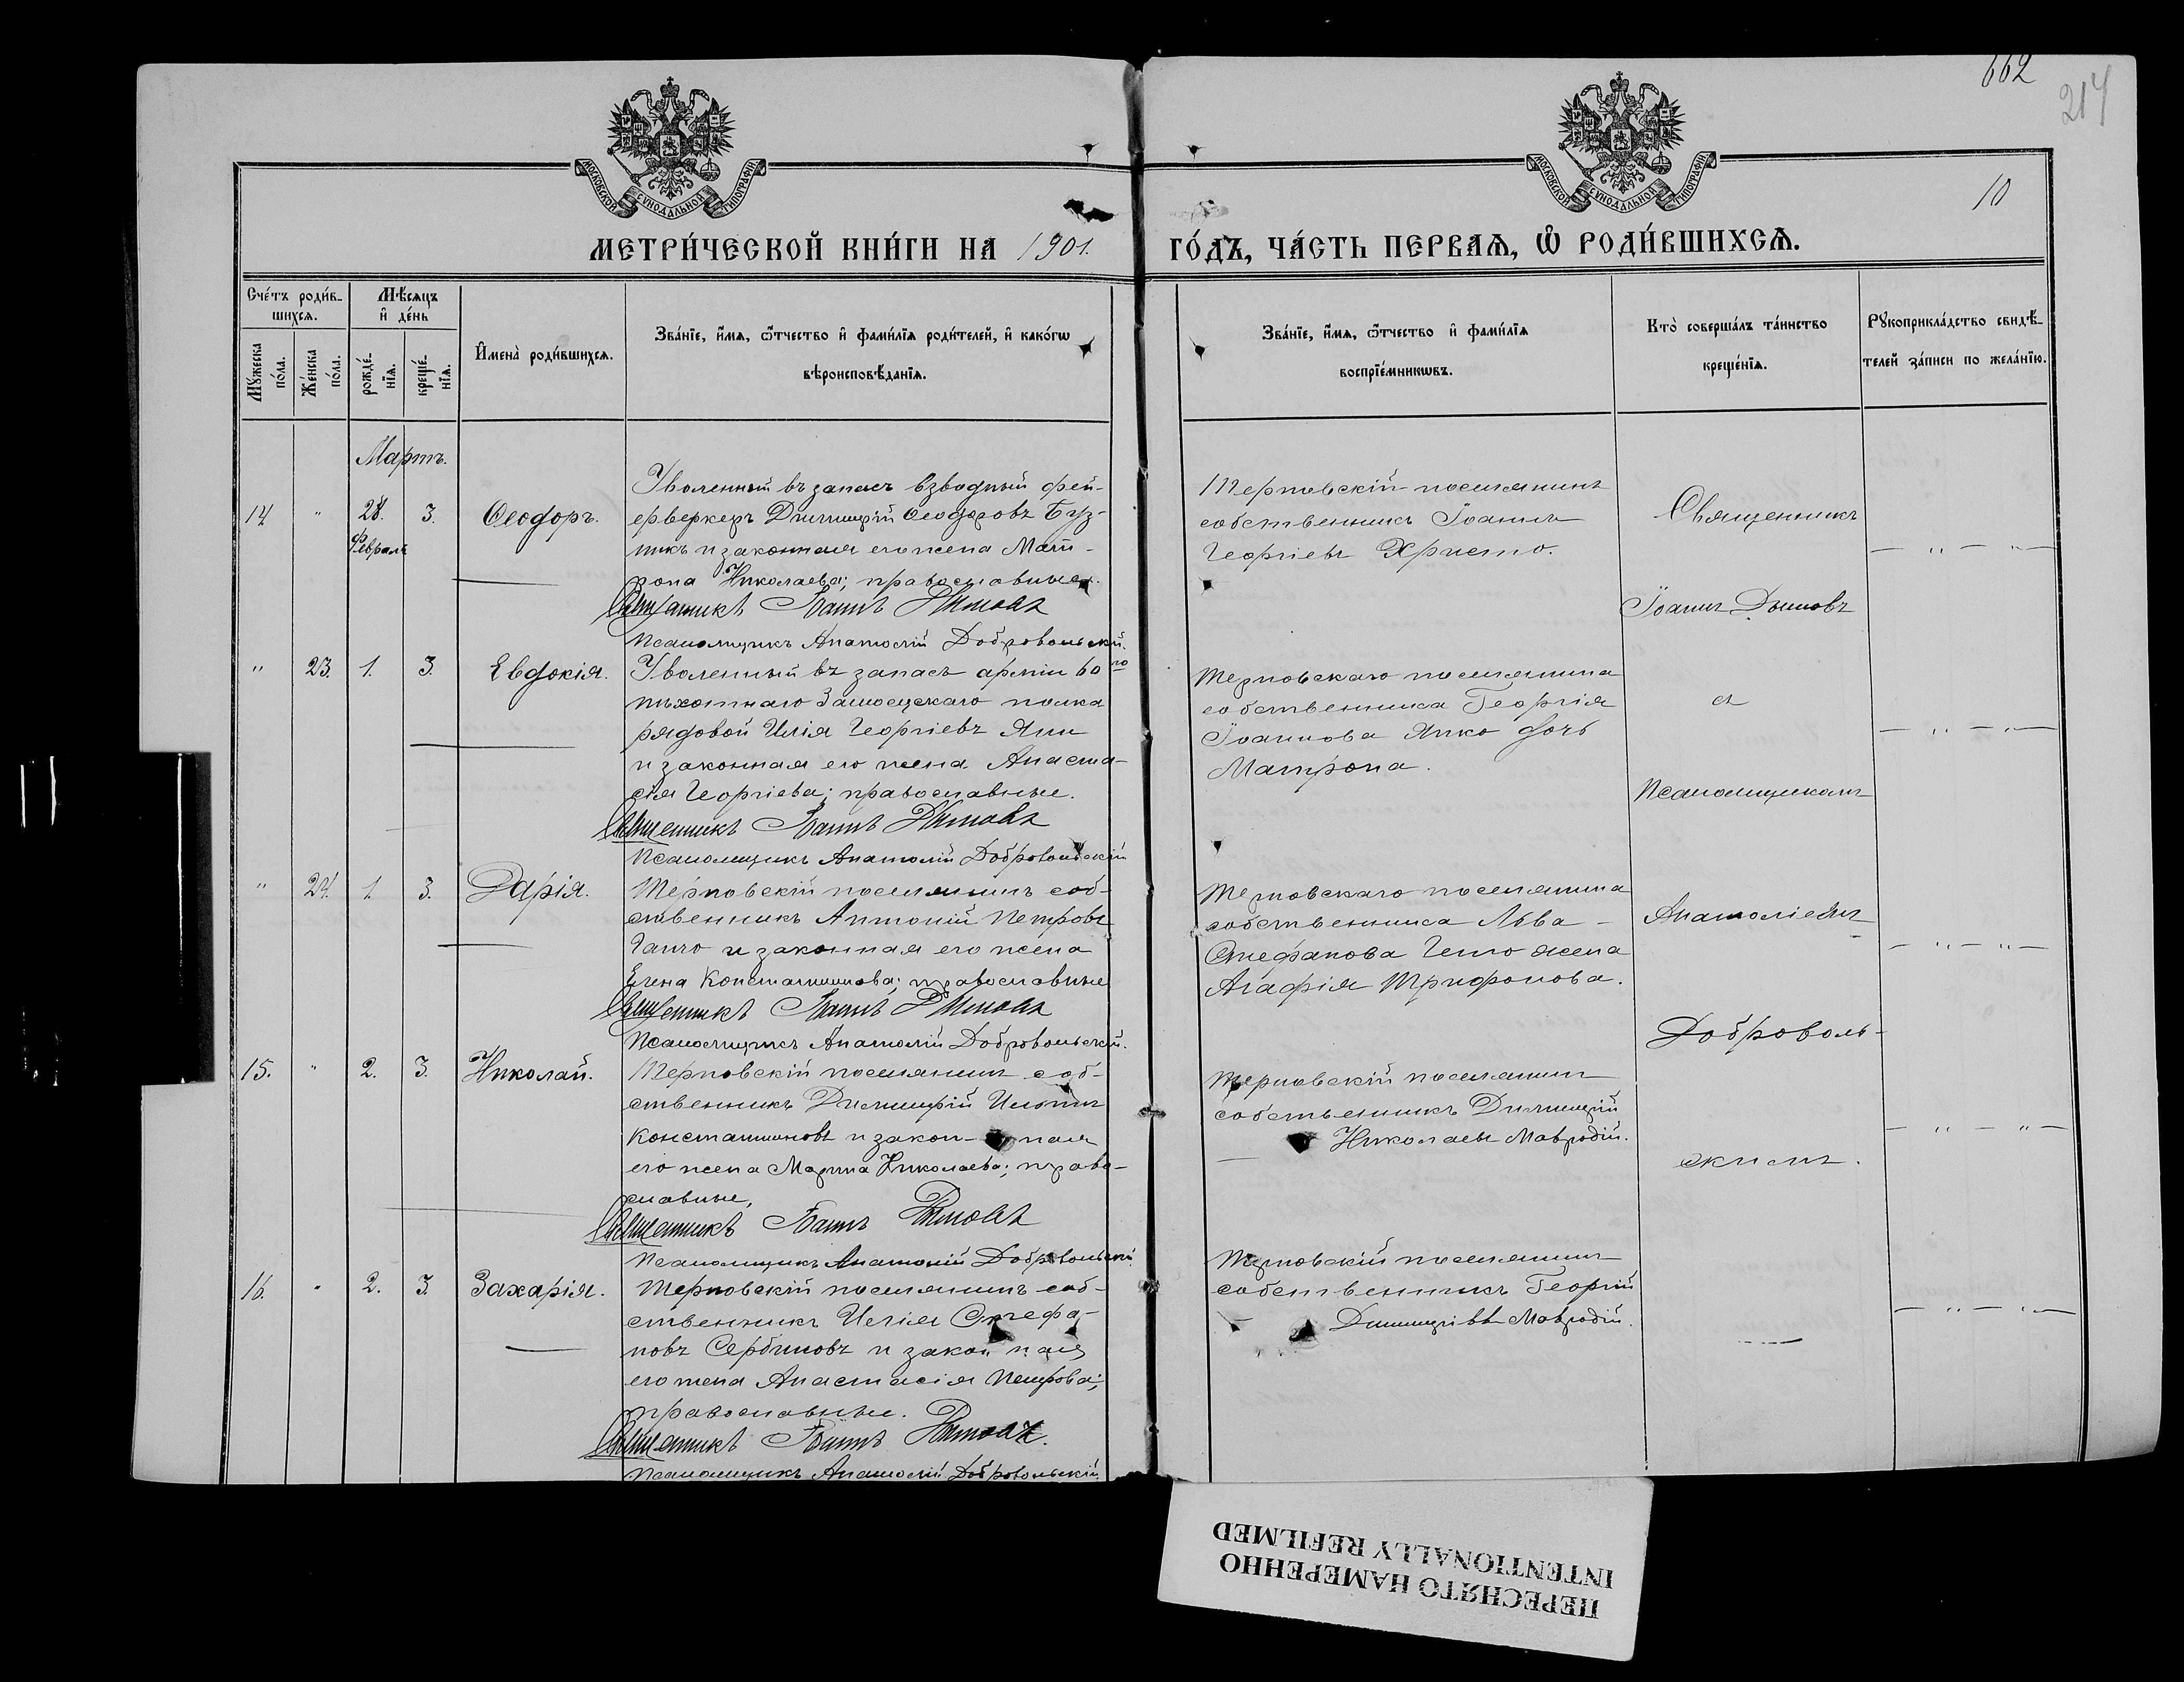 662
214
МОСКОВСКОЙ СѴНОДАЛЬНОЙ ТИПОГРАФІИ
МОСКОВСКОЙ СѴНОДАЛЬНОЙ ТИПОГРАФІИ
10
МЕТРИ́ЧЕСКОЙ КНИ́ГИ НА 1901. ГО́ДЪ, ЧА́СТЬ ПЕРВАѦ, Ѡ҆ РОДИ́ВШИХСѦ.
Сче́тъ роди́в-
шихсѧ.
Мѣ́сѧцъ
и҆ де́нь
Мꙋ́жеска
по́ла.
Же́нска
по́ла.
рожде́-
нїѧ.
креще́-
нїѧ.
И҆мена̀ роди́вшихсѧ.
Зва́нїе, и҆́мѧ, ѻ҆́тчество и҆ фами́лїѧ роди́телей, и҆ како́гѡ
вѣроисповѣ́данїѧ.
Зва́нїе, и҆́мѧ, ѻ҆́тчество и҆ фами́лїѧ
воспрїе́мникѡвъ.
Кто̀ соверша́лъ та́инство
креще́нїѧ.
Рꙋкоприкла́дство свидѣ́-
телей за́писи по жела́нїю.
Мартъ.
14 " 28. 3. Ѳеодоръ.
Февраля
Уволенный въ запасъ взводный фей-
ерверкеръ Димитрій Ѳеодоровъ Буз-
никъ и законная его жена Мат-
рона Николаева; православные.
Священникъ Іоаннъ Дымовъ
Псаломщикъ Анатолій Добровольскій.
Терновскій поселянинъ
собственникъ Іоаннъ
Георгіевъ Христо.
Священникъ
Іоаннъ Дымовъ
" 23. 1. 3. Евдокія.
Уволенный въ запасъ арміи 60го
пѣхотнаго Замосцскаго полка
рядовой Илія Георгіевъ Яни
и законная его жена Анаста-
сія Георгіева; православные.
Священникъ Іоаннъ Дымовъ
Псаломщикъ Анатолій Добровольскій
Терновскаго поселянина
собственника Георгія
Іоаннова Янко дочь
Матрона.
съ
Псаломщикомъ
" 24. 1. 3. Дарія.
Терновскій поселянинъ соб-
ственникъ Антоній Петровъ
Ганчо и законная его жена
Елена Константинова; православные
Священникъ Іоаннъ Дымовъ
Псаломщикъ Анатолій Добровольскій.
Терновскаго поселянина
собственника Льва
Стефанова жена
Агафія Трифонова.
Анатоліемъ
Доброволь-
15. " 2. 3. Николай.
Терновскій поселянинъ соб-
ственникъ Димитрій Ильинъ
Константиновъ и закон- ная
его жена Марина Николаева; право-
славные,
Священникъ Іоаннъ Дымовъ
Псаломщикъ Анатолій Добровольскій.
Терновскій поселянинъ
собственникъ Димитрій
Николаевъ Мавродій.
скимъ.
16. " 2. 3. Захарія.
Терновскій поселянинъ соб-
ственникъ Илія Стефа-
новъ Сербиновъ и закон ная
его жена Анастасія Петрова;
православные.
Священникъ Іоаннъ Дымовъ.
Псаломщикъ Анатолій Добровольскій.
Терновскій поселянинъ
собственникъ Георгій
Димитріевъ Мавродій.
ПЕРЕСНЯТО НАМЕРЕННО
INTENTIONALLY REFILMED